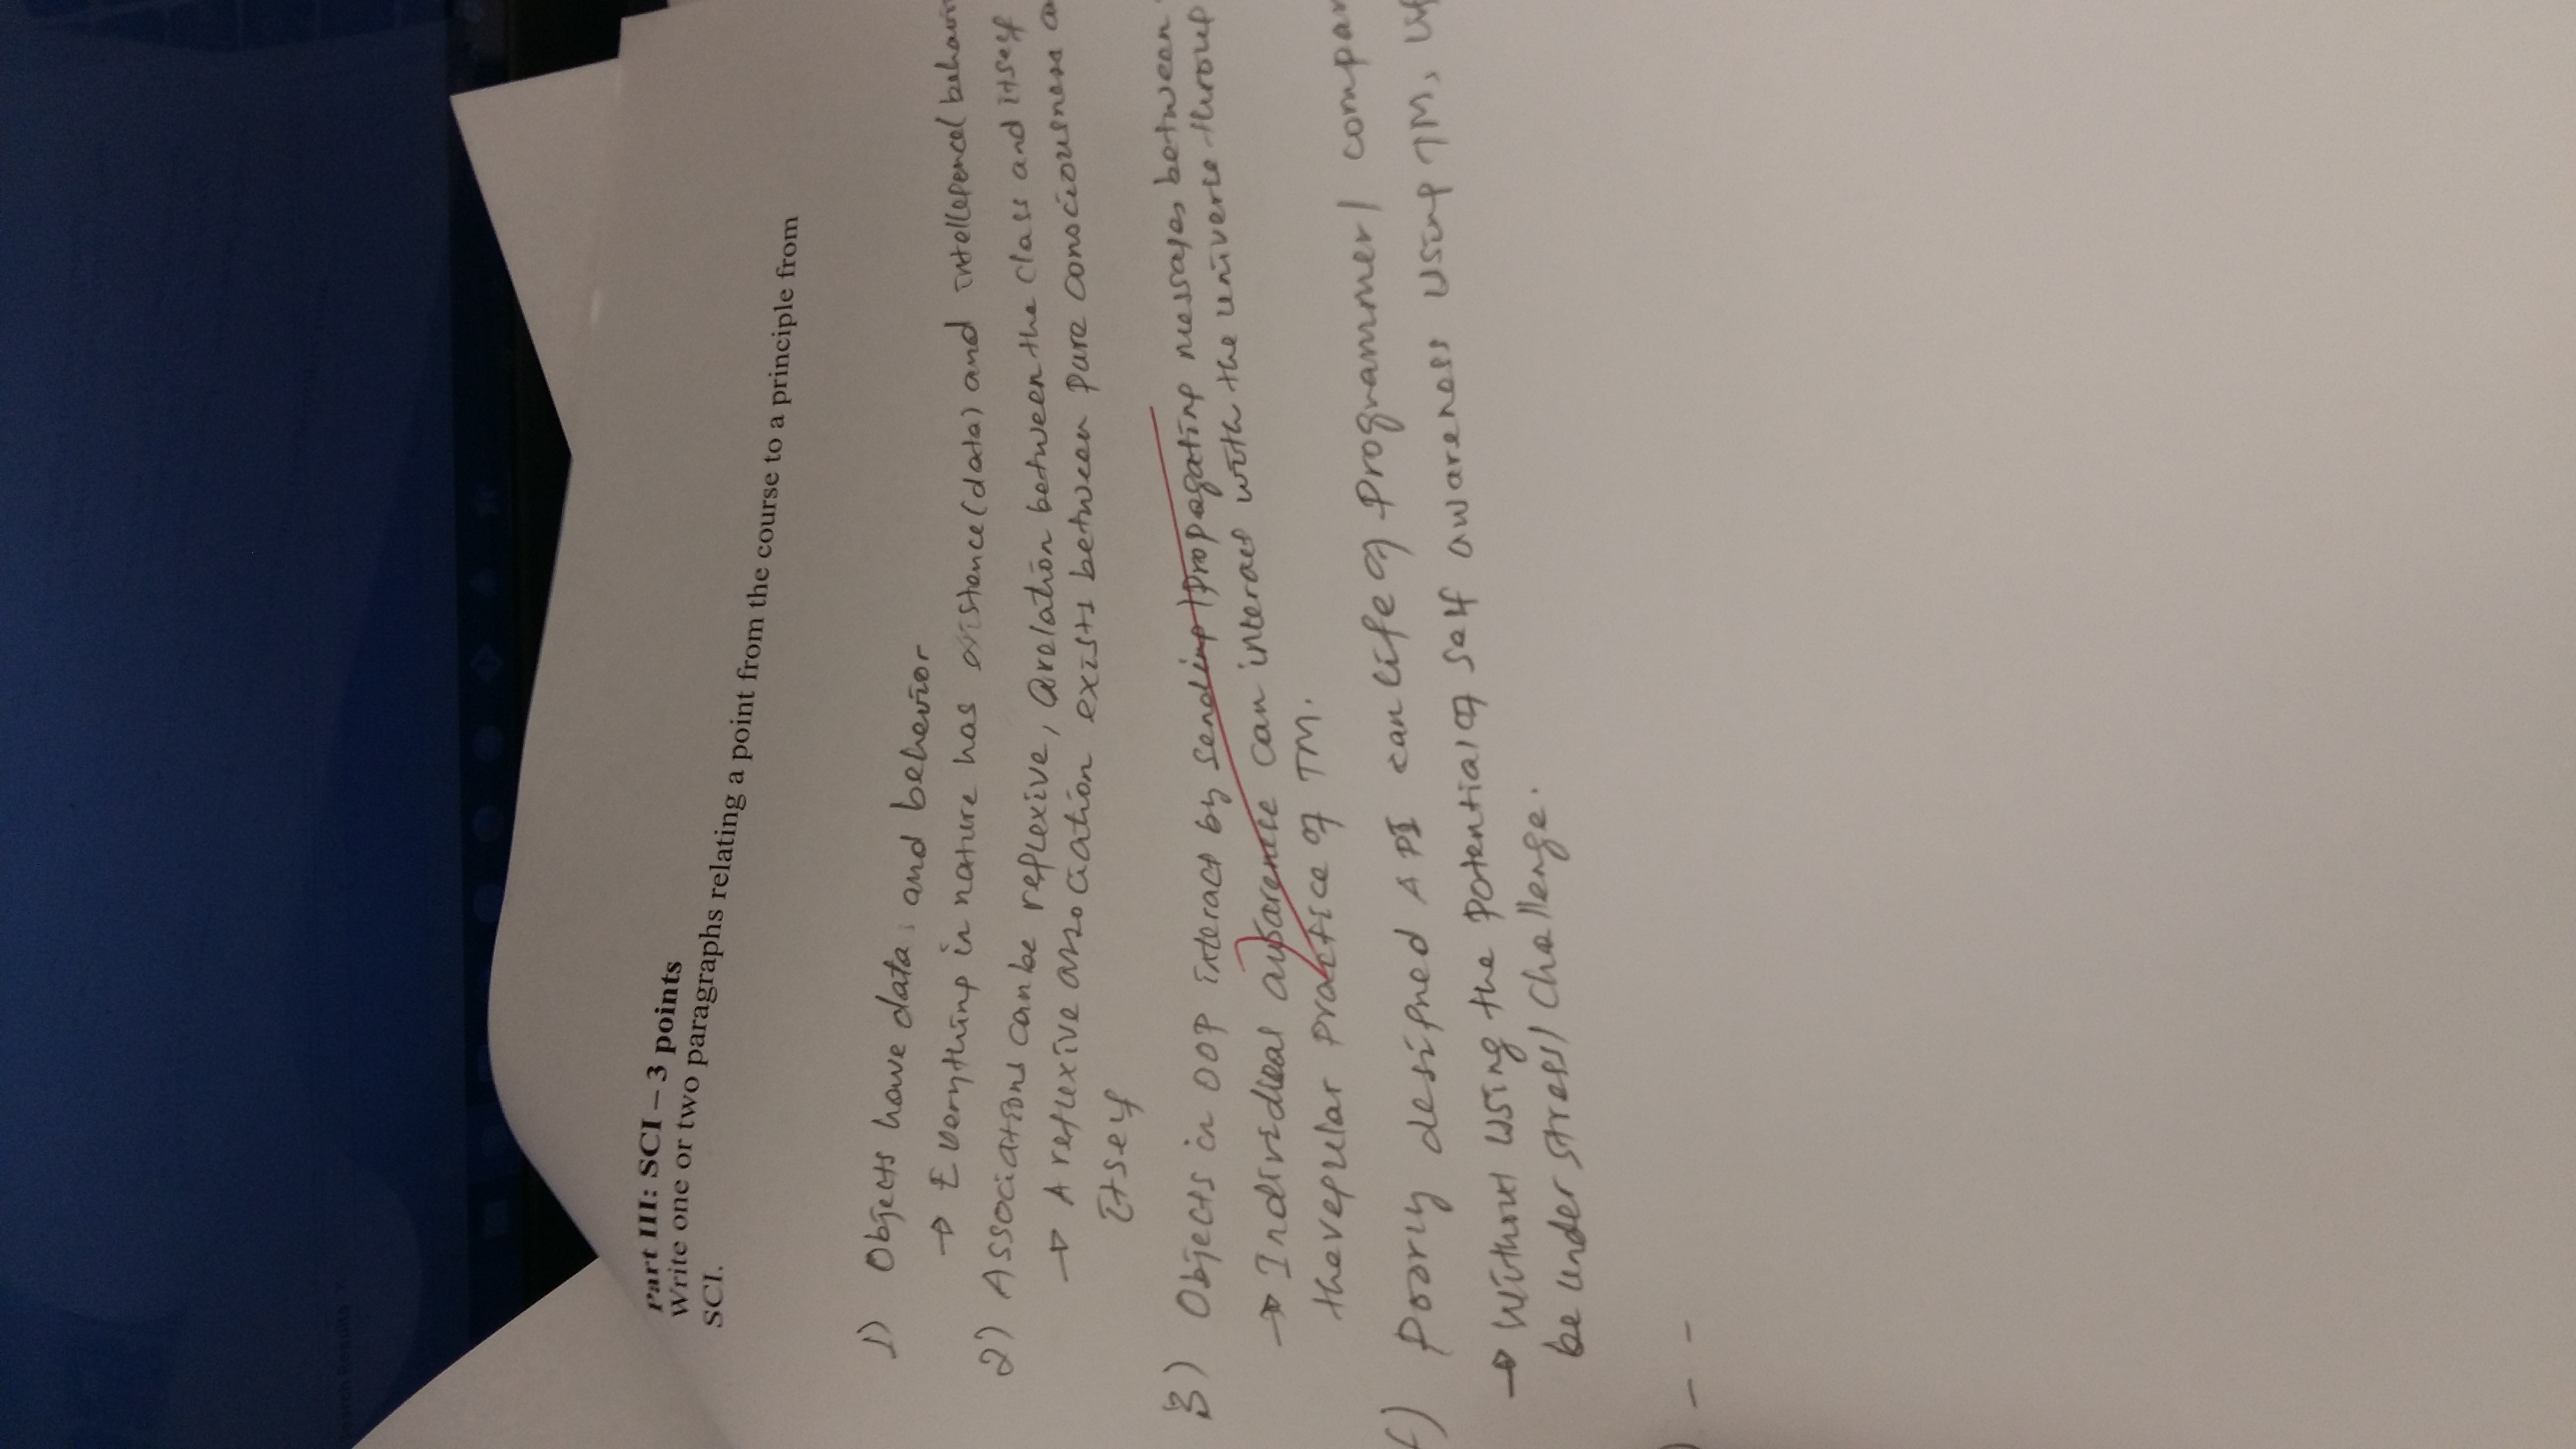 Search Results
Part III: SCI – 3 points
Write one or two paragraphs relating a point from the course to a principle from
SCI.
1) Objects have data, and behavior
→ Everything in nature has existence (data) and
2) Associations can be reflexive, A relation between the class and itself
→ A reflexive association exists between pure consciousness
itself
3) Objects in OOP interact by sending / propagating messages between
→ Individual awareness can interact with the universe
the regular practice of TM.
) Poorly designed API can life of programmer /
→ Without using the potential of self awareness using TM,
be under stress / challenge.
) - -